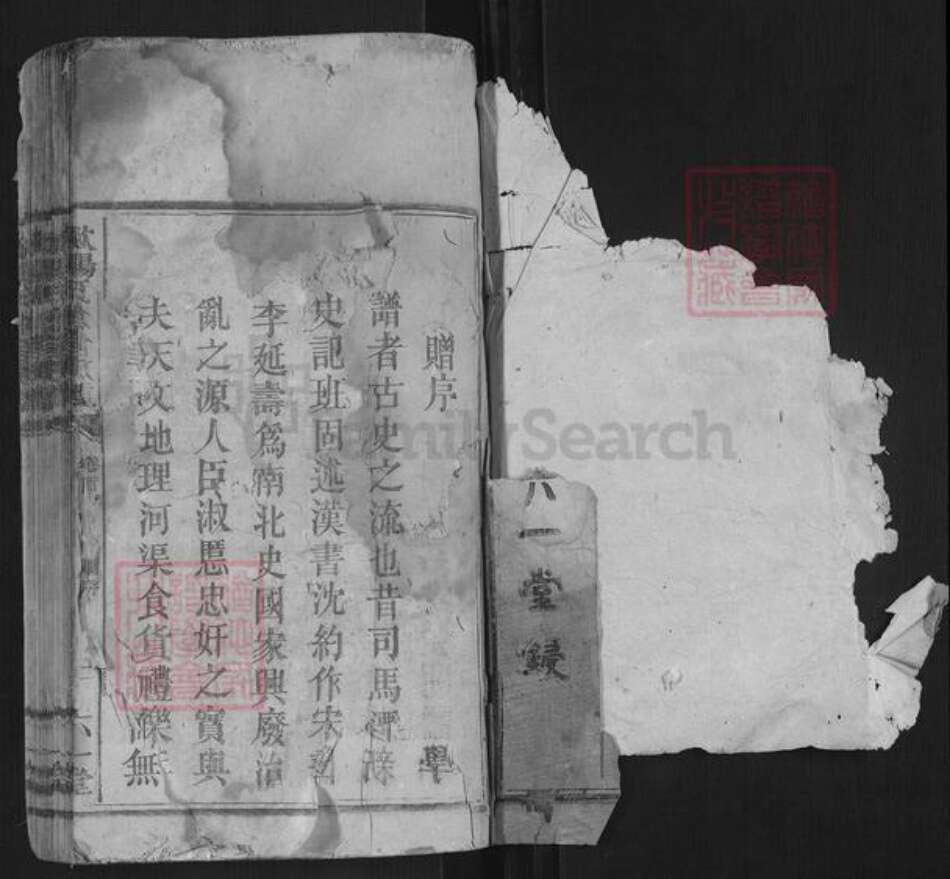 六一堂鋟
贈序
譜者古史之流也昔司馬
史記班固述漢書沈約作宋
李延壽爲南北史國家興廢治
亂之源人臣淑慝忠奸之實與
夫天文地理河渠食貨禮樂無
卷首
六一堂
FamilySearch